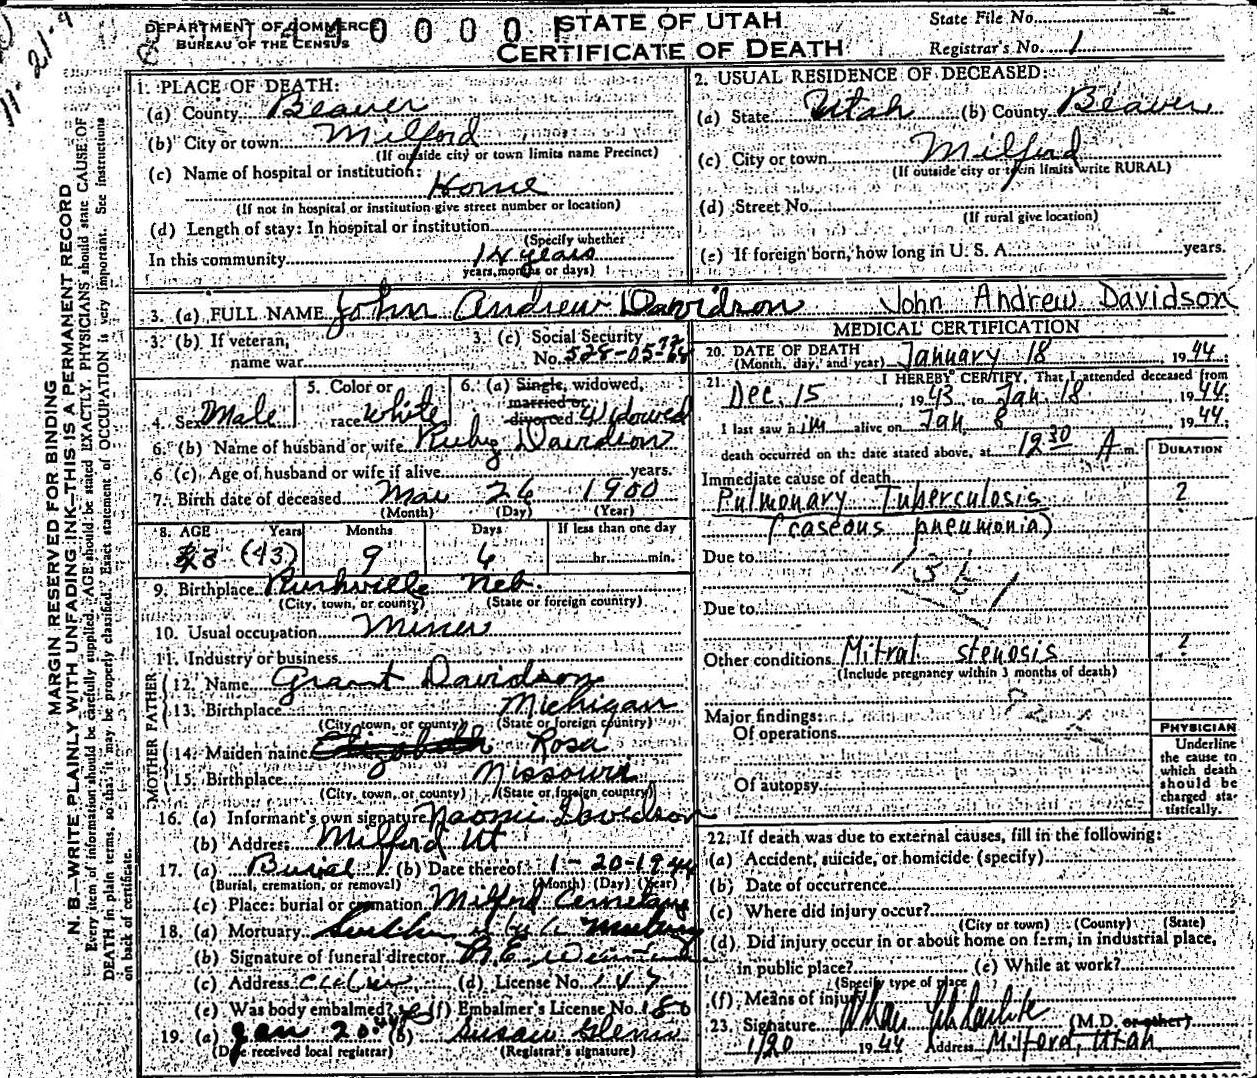 DEPARTMENT OF COMMERCE
BUREAU OF THE CENSUS
STATE OF UTAH
CERTIFICATE OF DEATH
State File No.
Registrar's No. 1
MARGIN RESERVED FOR BINDING
N. B.—WRITE PLAINLY WITH UNFADING INK—THIS IS A PERMANENT RECORD
Every item of information should be carefully supplied. AGE should be stated EXACTLY. PHYSICIANS should state CAUSE OF
DEATH in plain terms, so that it may be properly classified. Exact statement of OCCUPATION is very important. See instructions
on back of certificate.
1. PLACE OF DEATH:
(a) County Beaver
(b) City or town Milford
(If outside city or town limits name Precinct)
(c) Name of hospital or institution:
Home
(If not in hospital or institution give street number or location)
(d) Length of stay: In hospital or institution
(Specify whether
In this community 14 years
years, months or days)
2. USUAL RESIDENCE OF DECEASED:
(a) State Utah (b) County Beaver
(c) City or town Milford
(If outside city or town limits write RURAL)
(d) Street No.
(If rural give location)
(e) If foreign born, how long in U. S. A. years.
3. (a) FULL NAME John Andrew Davidson John Andrew Davidson
3. (b) If veteran,
name war
3. (c) Social Security
No. 528-05-
4. Sex Male
5. Color or
race white
6. (a) Single, widowed,
married or
divorced Widowed
6. (b) Name of husband or wife Ruby Davidson
6 (c) Age of husband or wife if alive years.
7. Birth date of deceased Mar 26 1900
(Month) (Day) (Year)
8. AGE Years Months Days If less than one day
(43) 9 6 hr. min.
9. Birthplace Rushville Neb.
(City, town, or county) (State or foreign country)
10. Usual occupation Miner
11. Industry or business
FATHER
12. Name Grant Davidson
13. Birthplace Michigan
(City, town, or county) (State or foreign country)
MOTHER
14. Maiden name Elizabeth Rosa
15. Birthplace Missouri
(City, town, or county) (State or foreign country)
16. (a) Informant's own signature Naomi Davidson
(b) Address Milford Ut
17. (a) Burial (b) Date thereof 1-20-1944
(Burial, cremation, or removal) (Month) (Day) (Year)
(c) Place: burial or cremation Milford Cemetery
18. (a) Mortuary
(b) Signature of funeral director
(c) Address (d) License No. 147
(e) Was body embalmed? yes (f) Embalmer's License No. 186
19. (a) Jan 20 (b) Susan Glenn
(Date received local registrar) (Registrar's signature)
MEDICAL CERTIFICATION
20. DATE OF DEATH January 18, 1944;
(Month, day, and year)
21. I HEREBY CERTIFY, That I attended deceased from
Dec. 15 1943, to Jan 18 1944;
I last saw him alive on Jan. 8 1944;
death occurred on the date stated above, at 1230 A m.
DURATION
Immediate cause of death
Pulmonary Tuberculosis ?
(caseous pneumonia)
Due to
Due to
Other conditions Mitral stenosis ?
(Include pregnancy within 3 months of death)
Major findings:
Of operations
Of autopsy
PHYSICIAN
Underline
the cause to
which death
should be
charged sta-
tistically.
22. If death was due to external causes, fill in the following:
(a) Accident, suicide, or homicide (specify)
(b) Date of occurrence
(c) Where did injury occur?
(City or town) (County) (State)
(d) Did injury occur in or about home on farm, in industrial place,
in public place? (e) While at work?
(Specify type of place
(f) Means of injury
23. Signature (M.D. or other)
1/20 1944 Address Milford, Utah